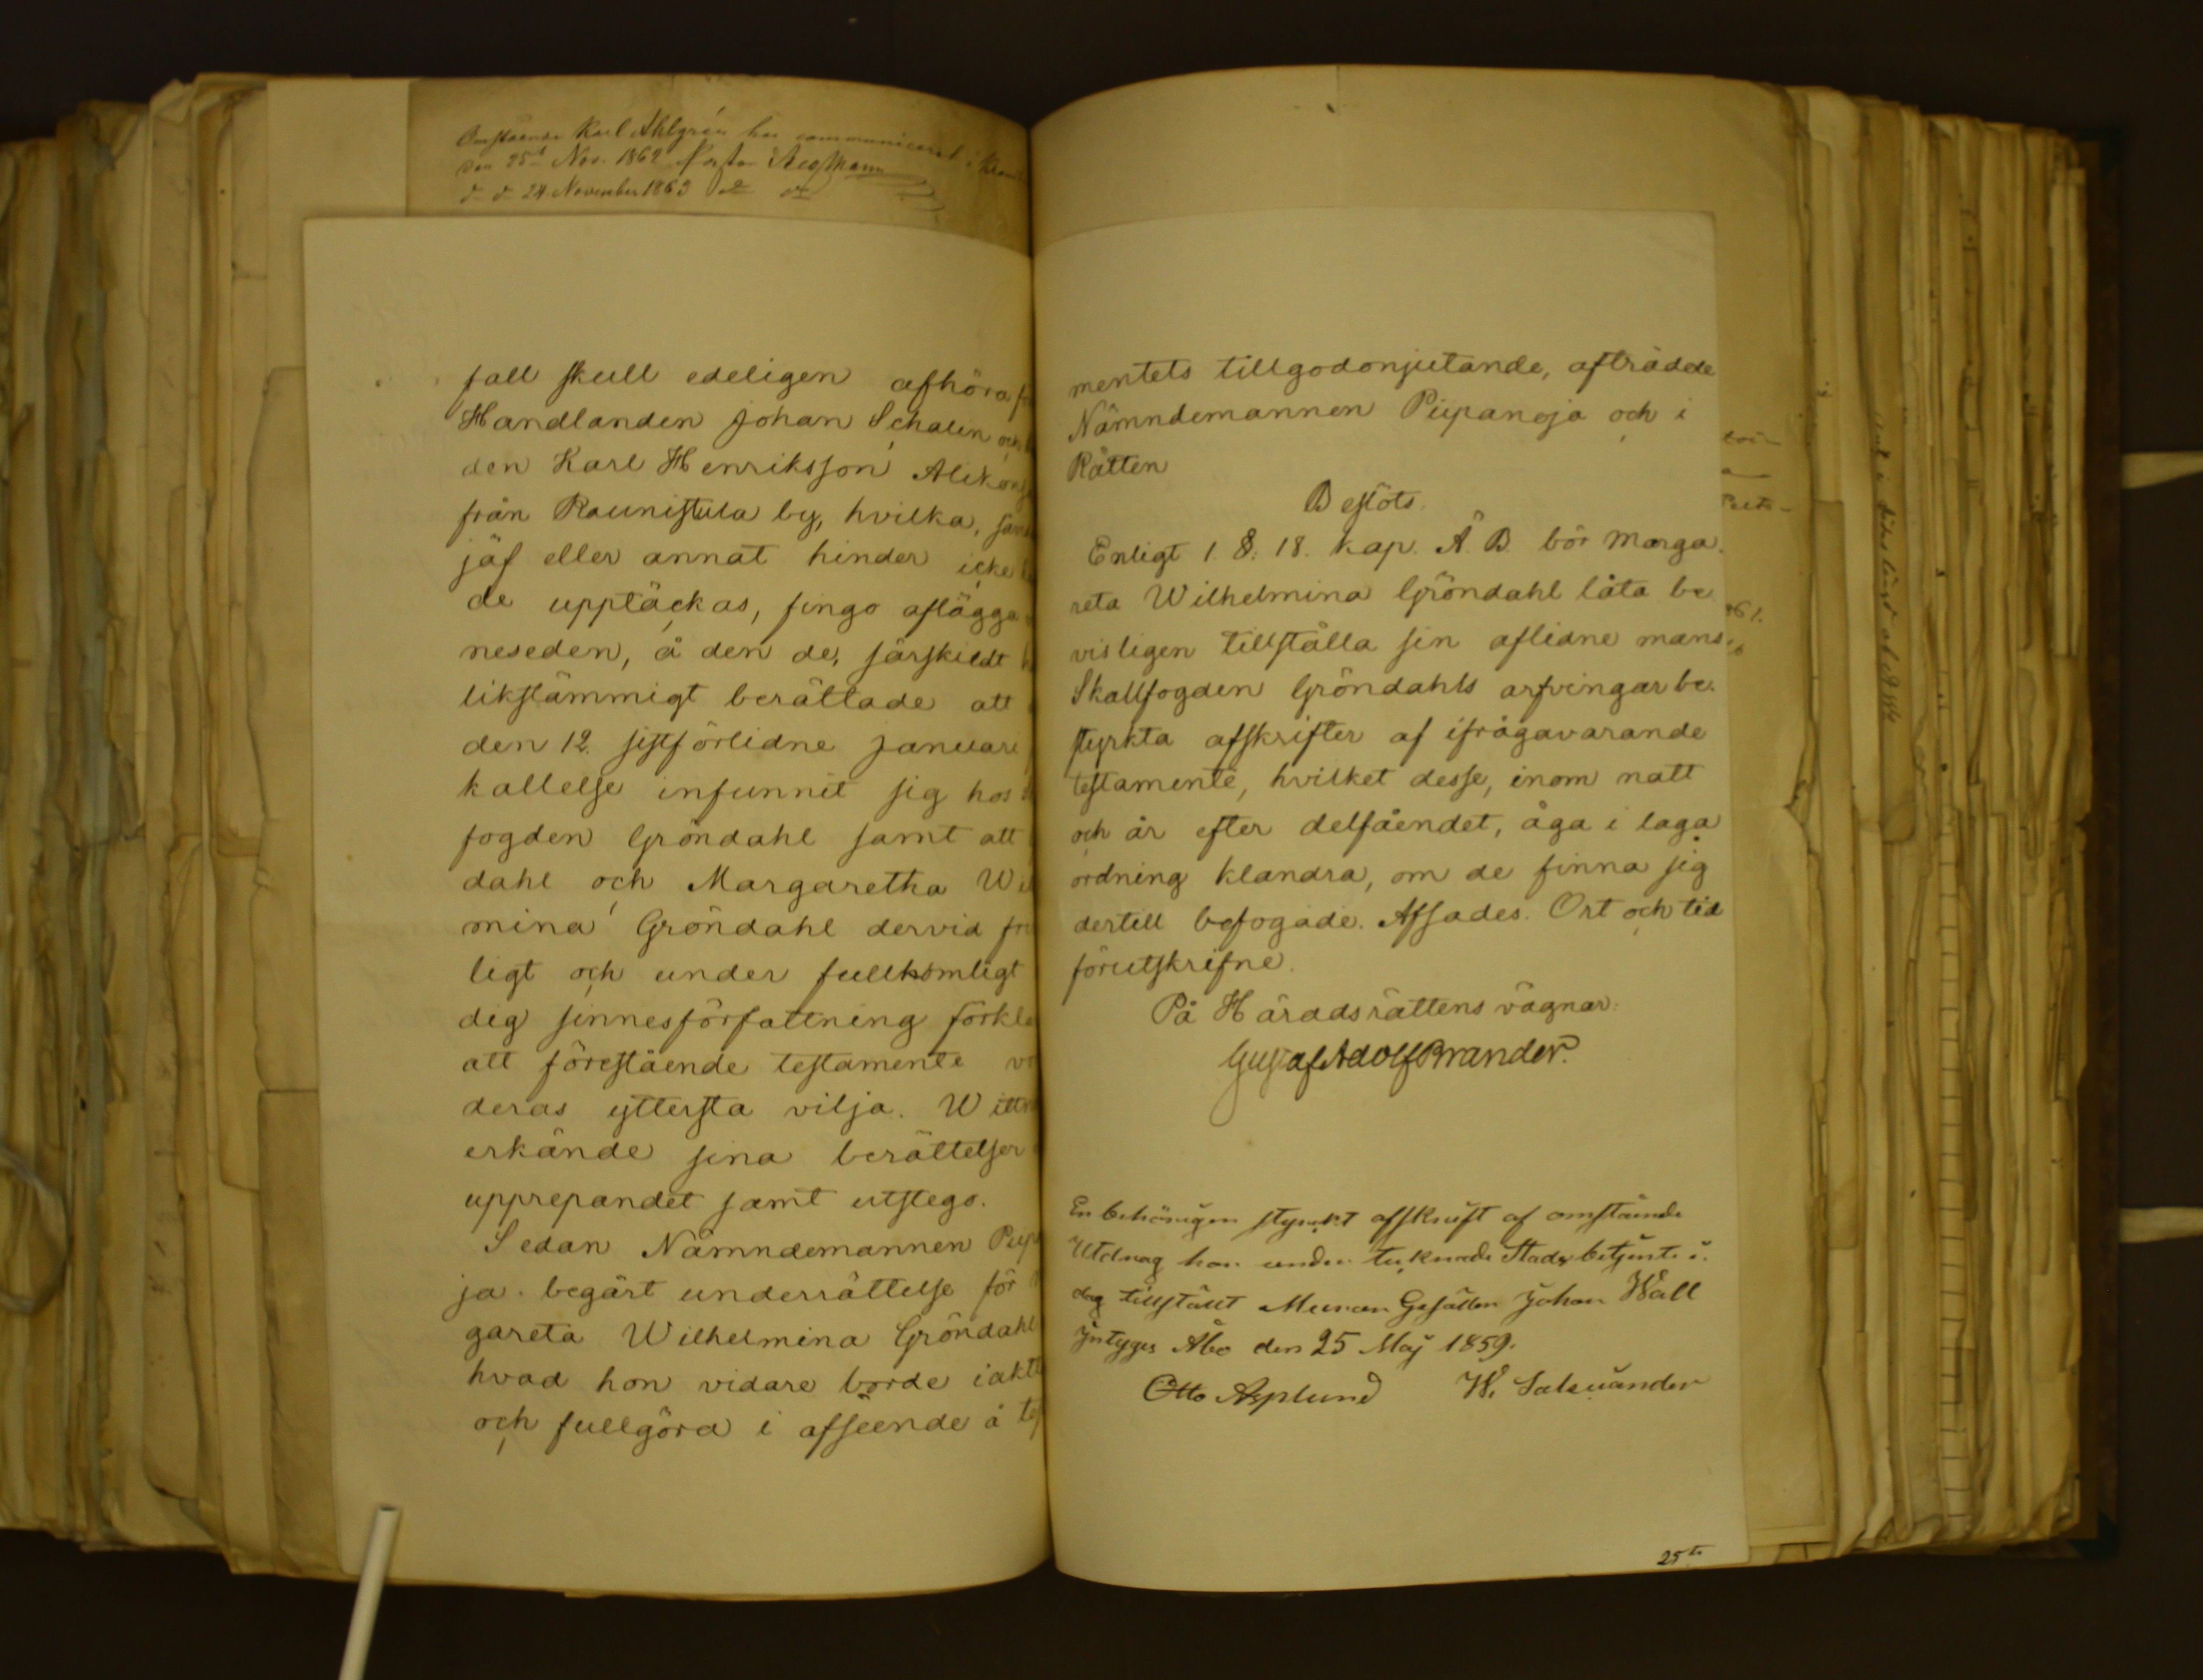 Omstående Karl Ahlgrén har communicerat i
den 25t Nov. 1862
d d 24 November 1863
fall skull edeligen afhöra
Handlanden Johan Schalin och
den Karl Henriksson
från Raunistula by, hvilka,
jäf eller annat hinder icke
de upptäckas, fingo aflägga
neseden, å den de, särskildt
likstämmigt berättade att
den 12. sistförlidne Januari
kallelse infunnit sig hos
fogden Gröndahl samt att
dahl och Margaretha Wil
mina Gröndahl dervid
ligt och under fullkomligt
dig sinnesförfattning förkla
att förestående testamente
deras yttersta vilja. Wittn
erkände sina berättelser
upprepandet samt utstego.
Sedan Nämndemannen Piip
ja begärt underrättelse för
gareta Wilhelmina Gröndahl
hvad hon vidare borde iaktt
och fullgöra i afseende å
mentets tillgodonjutande, afträdde
Nämndemannen Piipanoja och i
Rätten
Beslöts.
Enligt 1. §: 18. Kap. Ä. B. bör Marga
reta Wilhelmina Gröndahl låta be
visligen tillställa sin aflidne mans
Skallfogden Gröndahls arfvingar be
styrkta afskrifter af ifrågavarande
testamente, hvilket desse, inom natt
och år efter delfåendet, äga i laga
ordning klandra, om de finna sig
dertill befogade. Afsades. Ort och tid
förutskrifne.
På Häradsrättens vägnar:
Gustaf Adolf Brander.
En behörigen styrkt afskrift af omstående
Utdrag har undertecknade Stadsbetjente i
dag tillställt Murare Gesällen Johan Wall
Intygas Åbo den 25 Maj 1859.
Otto Asplund W. Salenander
25te